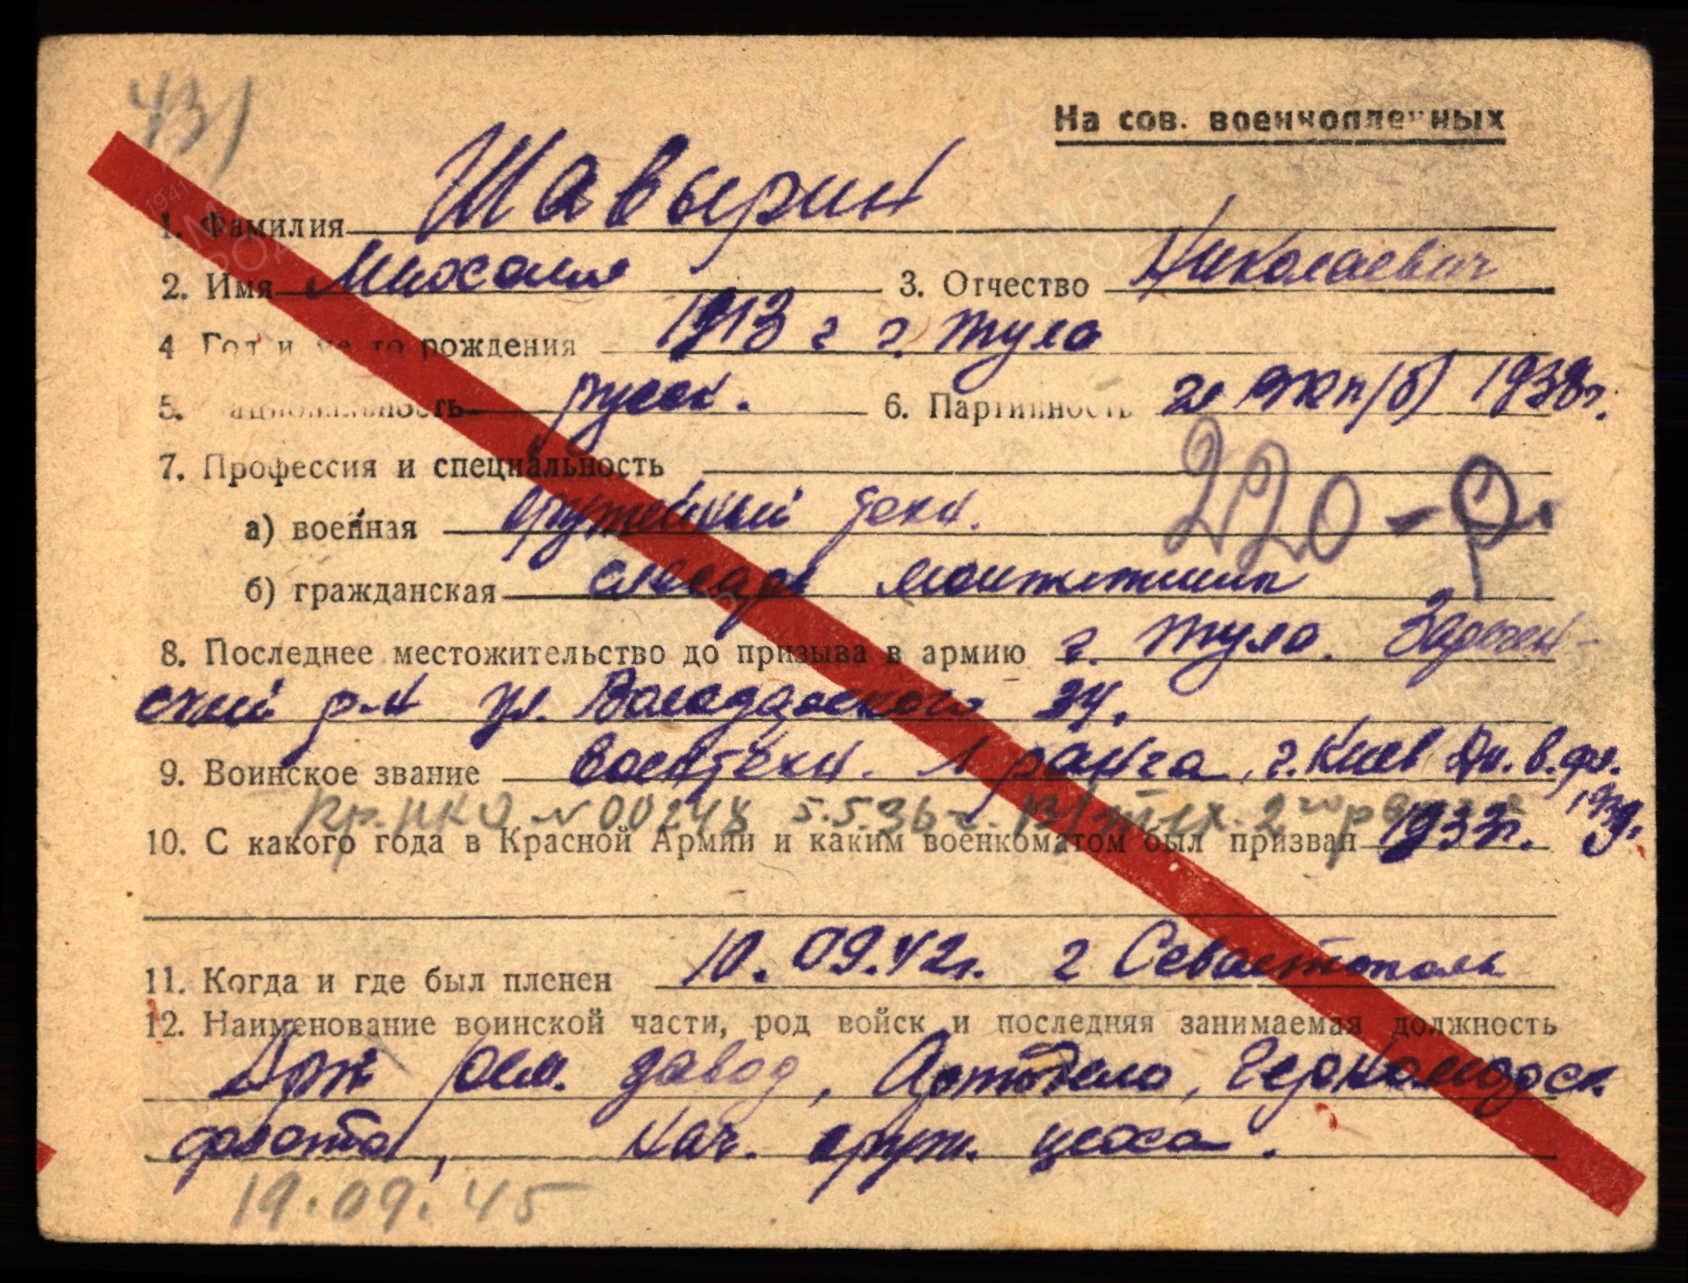 431
На сов. военнопленных
1. Фамилия Шавырин
2. Имя Михаил 3. Отчество Николаевич
4 Год и место рождения 1913 г г. Тула
5. Национальность русск. 6. Партийность ВКП(б) 1938г.
7. Профессия и специальность
220-
а) военная оружейный техн.
б) гражданская слесарь
8. Последнее местожительство до призыва в армию г. Тула. Заречен-
ский р-н ул. Володарского 34.
9. Воинское звание воентехн. 1 ранга, г. Киев Дн. в. фл.
Пр. НКО № 00248 5.5.36 г. тех. 2го ранга 1939.
10. С какого года в Красной Армии и каким военкоматом был призван 1933г.
11. Когда и где был пленен 10.09.42г. г Севастополь
12. Наименование воинской части, род войск и последняя занимаемая должность
Арт рем. завод, Артотдела, Черноморск.
флота, нач. оруж. цеха.
19.09.45
ПАМЯТЬ
НАРОДА
1941